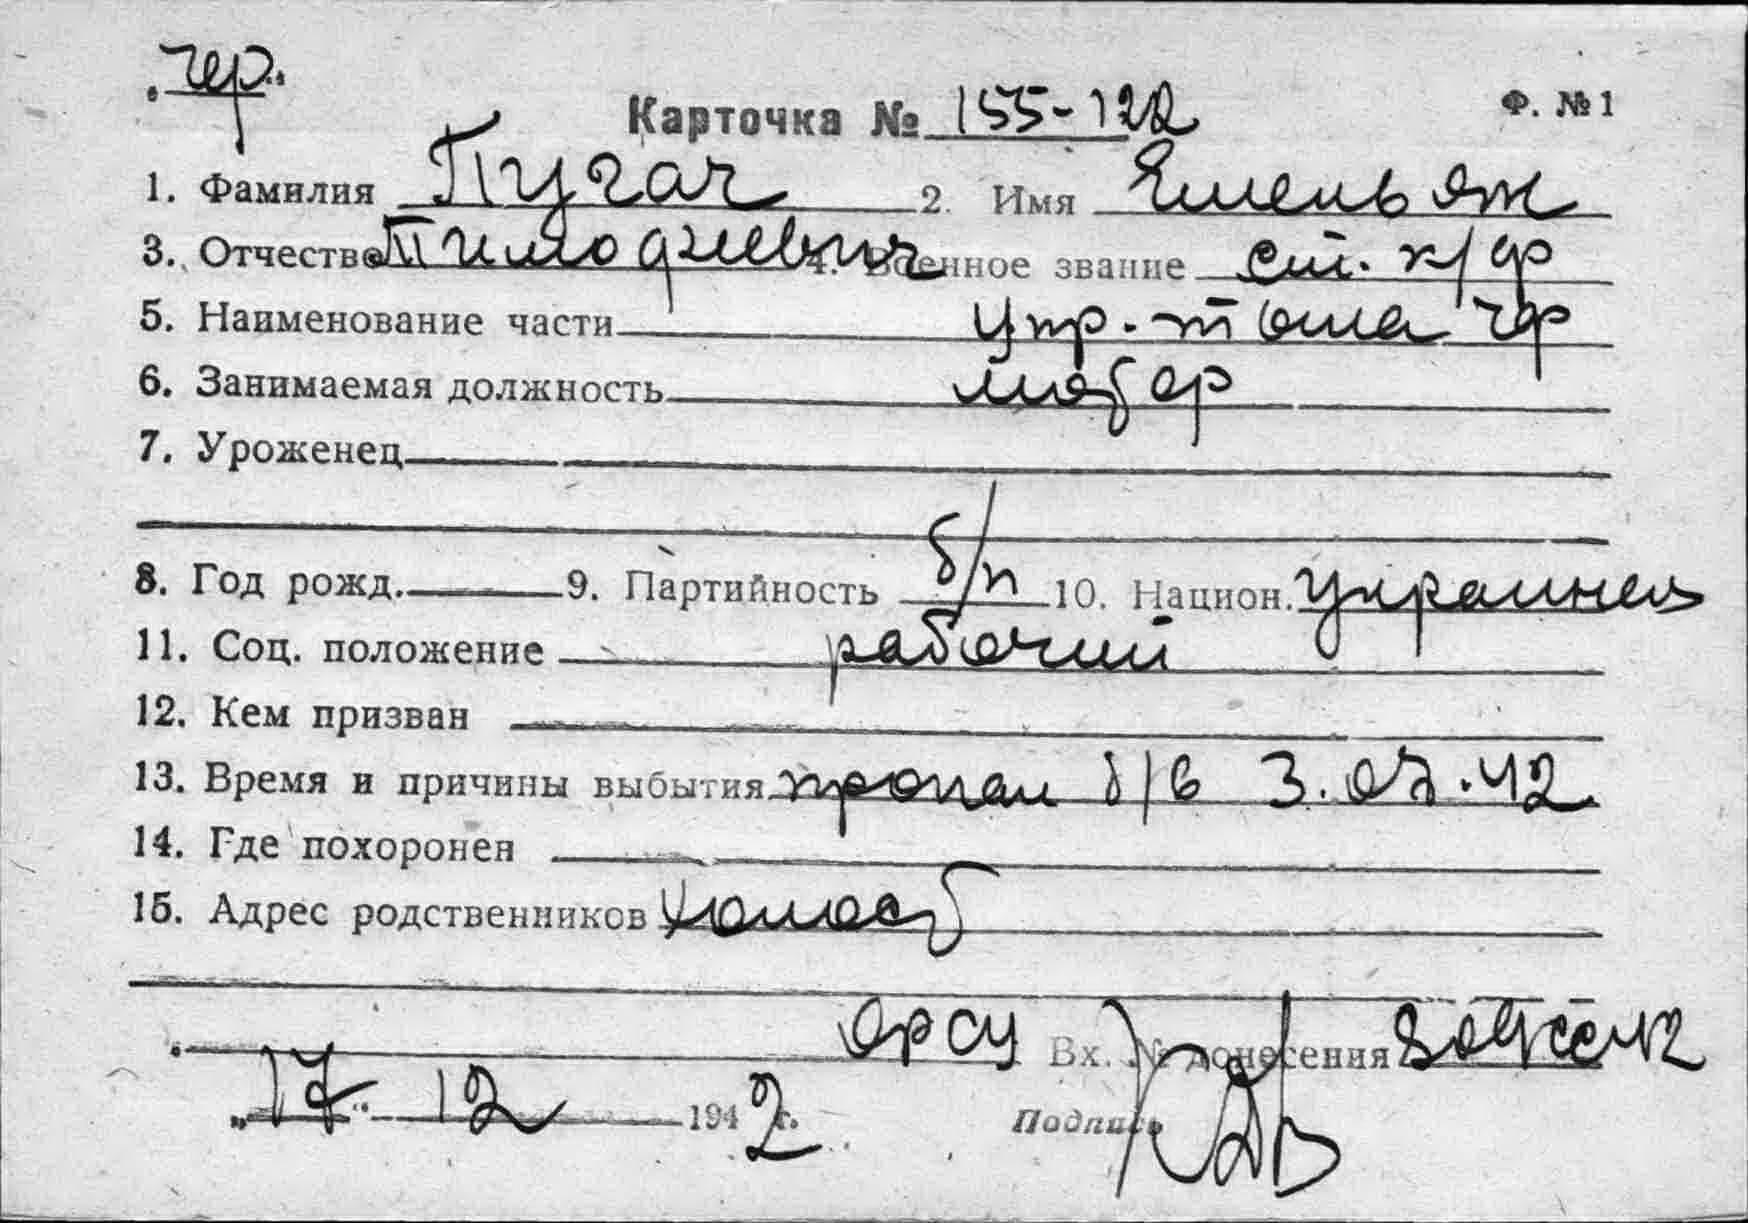 „чер."
Карточка № 155-122 Ф. № 1
1. Фамилия Пугач 2. Имя Емельян
3. Отчество Тимофеевич 4. Военное звание ст. к/ф
5. Наименование части Упр. тыла чф
6. Занимаемая должность шофер
7. Уроженец
8. Год рожд. 9. Партийность б/п 10. Национ. Украинец
11. Соц. положение рабочий
12. Кем призван
13. Время и причины выбытия пропал б/в 3.07.42.
14. Где похоронен
15. Адрес родственников холост
орсу Вх. № донесения
„17" 12 1942 г. Подпись